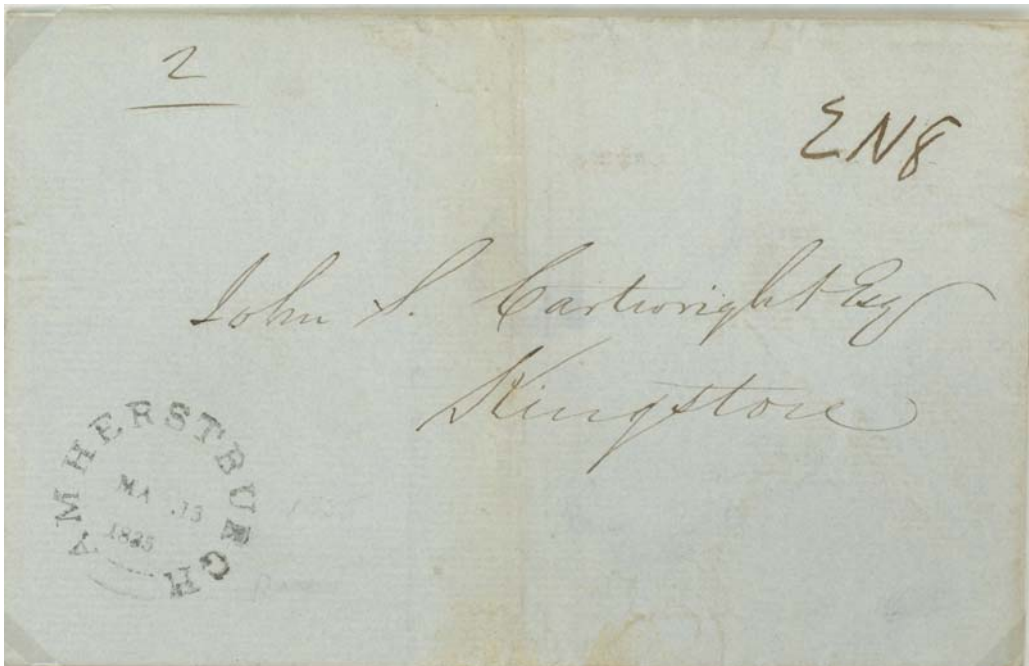 2
EN8
John S. Cartwright Esq
Kingston
AMHERSTBURGH
MA 13
1835